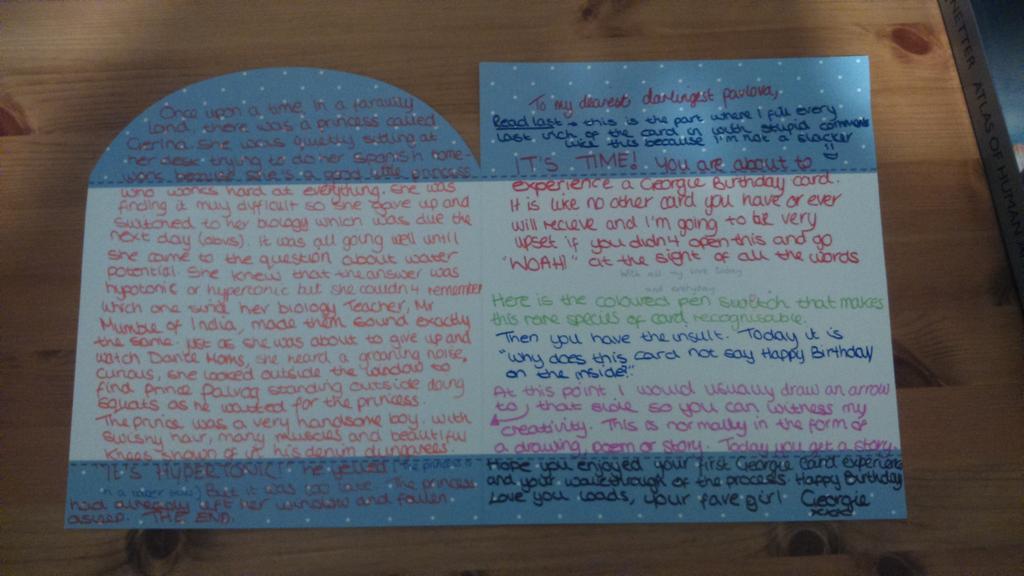 Once upon a time in a faraway
land, there was a princess called
Gerina. She was quietly sitting at
her desk trying to do her Spanish home-
work because she's a good little princess
who works hard at everything. She was
finding it muy difficult so she gave up and
switched to her biology which was due the
next day (obvs). It was all going well until
she came to the question about water
potential. She knew that the answer was
hypotonic or hypertonic but she couldn't remember
which one since her biology Teacher, Mr
Mumble of India, made them sound exactly
the same. Just as she was about to give up and
watch Dante Homs, she heard a groaning noise,
curious, she looked outside the window to
find Prince Pavlova standing outside doing
squats as he waited for the princess.
The prince was a very handsome boy, with
swishy hair, many muscles and beautiful
knees shown off by his denim dungarees.
"IT'S HYPERTONIC!" he yelled
But it was too late. The princess
had already left her window and fallen
asleep. THE END.
To my dearest darlingest pavlova,
Read last → this is the part where I fill every
last inch of the card in with stupid comments
like this because I'm not a slacker
IT'S TIME! You are about to
experience a Georgie Birthday card.
It is like no other card you have or ever
will recieve and I'm going to be very
upset if you didn't open this and go
"WOAH!" at the sight of all the words
With all my love today
and everyday
Here is the coloured pen switch that makes
this rare species of card recognisable.
Then you have the insult. Today it is
"why does this card not say Happy Birthday
on the inside?"
At this point I would usually draw an arrow
to that side so you can witness my
creativity. This is normally in the form of
a drawing, poem or story. Today you get a story.
Hope you enjoyed your first Georgie Card experience
and your walkthrough of the process. Happy Birthday
Love you loads, your fave girl Georgie
xxxx
NETTER ATLAS OF HUMAN